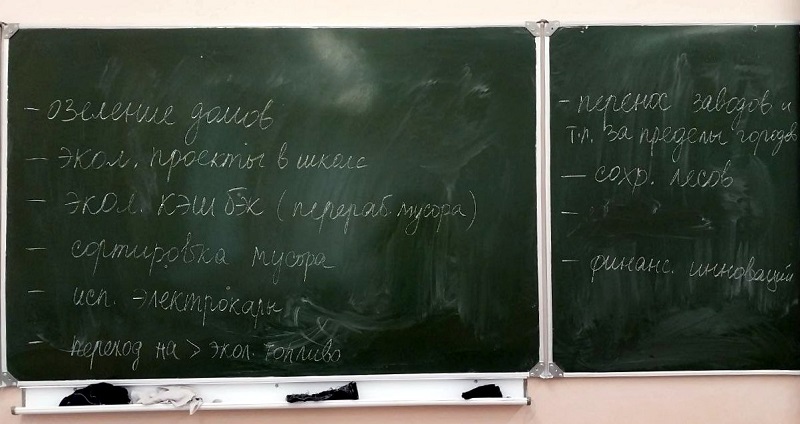 - озеление домов
- экол. проекты в школе
- экол. кэшбэк (перераб. мусора)
- сортировка мусора
- исп. электрокары
- переход на > экол. топливо
- перенос заводов и
т.п. за пределы городов
- сохр. лесов
-
- финанс. инноваций